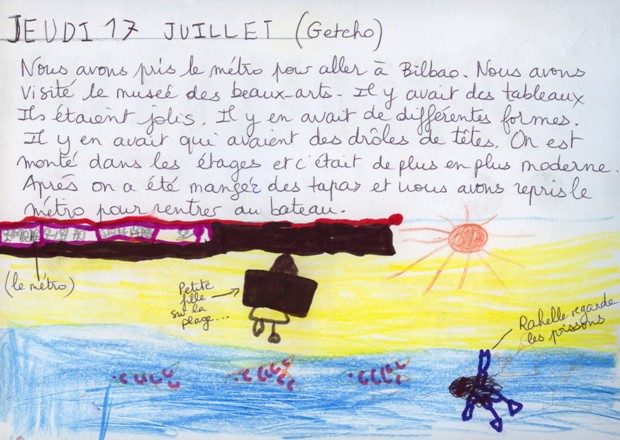 JEUDI 17 JUILLET (Getcho)
Nous avons pris le métro pour aller à Bilbao. Nous avons
visité le museé des beaux-arts. Il y avait des tableaux
Ils étaient jolis. Il y en avait de différentes formes.
Il y en avait qui avaient des drôles de têtes. On est
monté dans les étages et c'était de plus en plus moderne.
Après on a été manger des tapas et nous avons repris le
métro pour rentrer au bateau.
(le métro)
Petite
fille
sur la
plage....
Rahelle regarde
les poissons